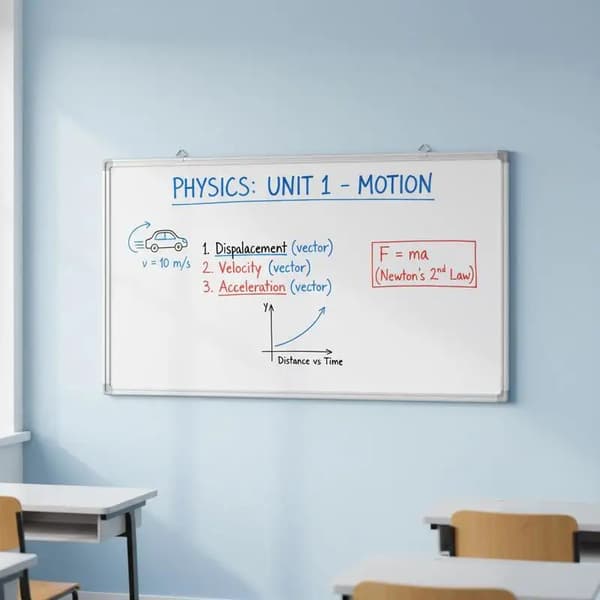 PHYSICS: UNIT 1 - MOTION
v = 10 m/s
1. Dispalacement (vector)
2. Velocity (vector)
3. Acceleration (vector)
F = ma
(Newton's 2nd Law)
y
Distance vs Time